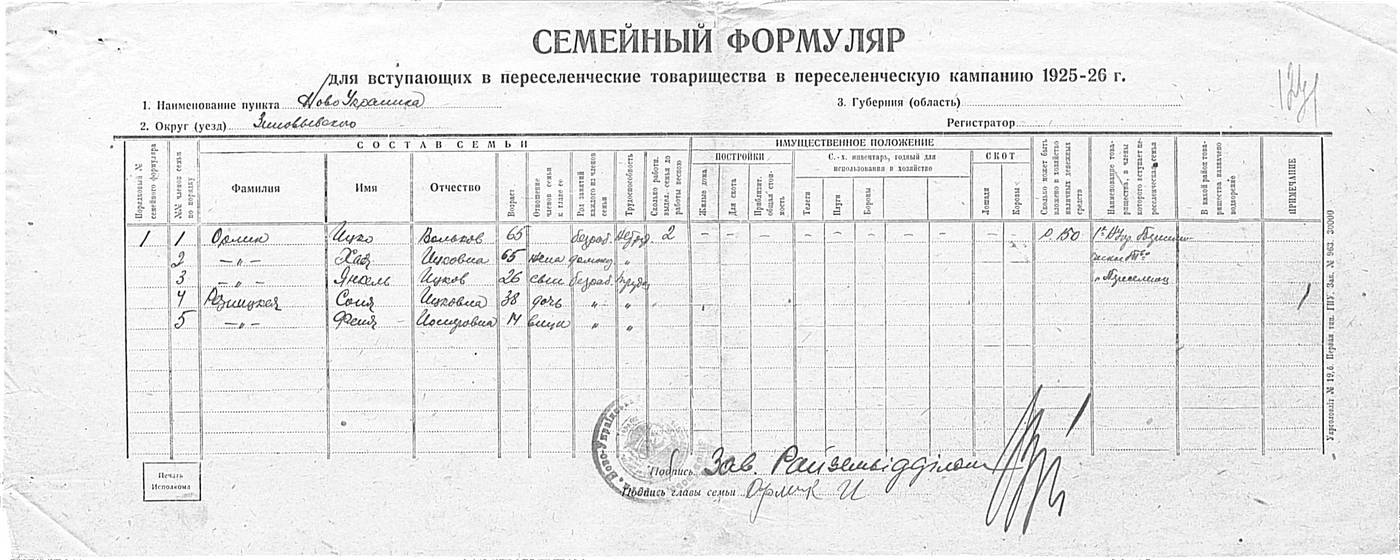 СЕМЕЙНЫЙ ФОРМУЛЯР
для вступающих в переселенческие товарищества в переселенческую кампанию 1925-26 г.
1. Наименование пункта НовоУкраинка
3. Губерния (область)
2. Округ (уезд) Зиновьевского
Регистратор
СОСТАВ СЕМЬИ
ИМУЩЕСТВЕННОЕ ПОЛОЖЕНИЕ
ПОСТРОЙКИ
С.-х. инвентарь, годный для использования в хозяйстве
СКОТ
Порядковый № семейного формуляра
№№ членов семьи по порядку
Фамилия
Имя
Отчество
Возраст
Отношение членов семьи к главе ее
Род занятий каждого из членов семьи
Трудоспособность
Сколько работн. выдел. семья до работы весною
Жилые дома
Для скота
Приблизит. общая стоимость
Телеги
Плуги
Бороны
Лошади
Коровы
Сколько может быть вложено в хозяйство наличных денежных средств
Наименование товарищества, в члены которого вступает переселенческая семья
В какой район товарищества назначено водворение
ПРИМЕЧАНИЕ
1 1 Орлик Ицко Вольков 65 безраб. 2 – – – – – – – – – – р. 150
2 –„– Хая Ицковна 65 жена „
3 –„– Янкель Ицков 26 сын безраб.
4 Резницкая Соня Ицковна 38 дочь „ „
5 –„– Феня Иосифовна 14 „ „
Печать Исполкома
Подпись Зав. Райземвідділом
Подпись главы семьи Орлик И
Укрголовліт № 19,6. Первая тип. ГПУ. Зак. № 963. 30000